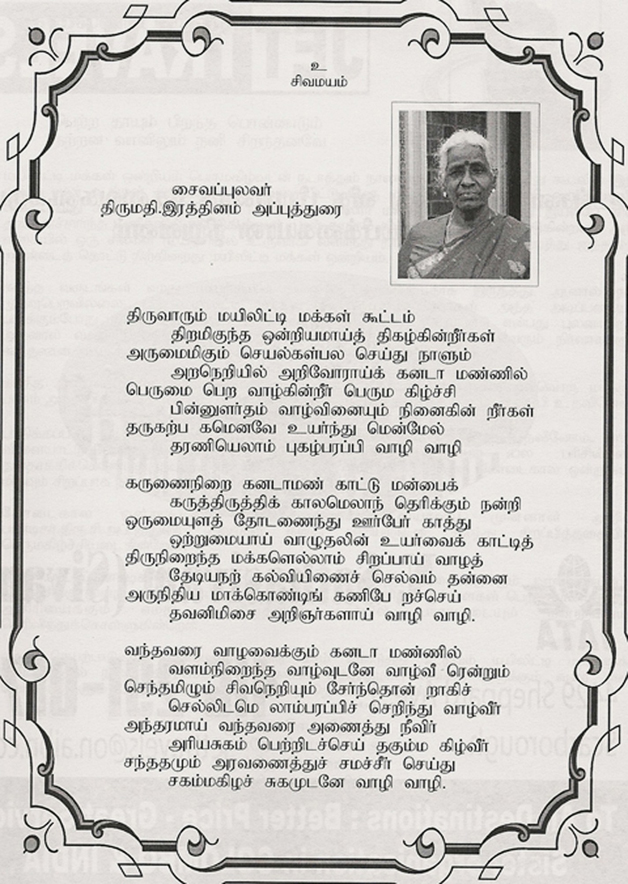 உ
சிவமயம்
சைவப்புலவர்
திருமதி.இரத்தினம் அப்புத்துரை
திருவாரும் மயிலிட்டி மக்கள் கூட்டம்
திறமிகுந்த ஒன்றியமாய்த் திகழ்கின்றீர்கள்
அருமைமிகும் செயல்கள்பல செய்து நாளும்
அறநெறியில் அறிவோராய்க் கனடா மண்ணில்
பெருமை பெற வாழ்கின்றீர் பெரும கிழ்ச்சி
பின்னுளர்தம் வாழ்வினையும் நினைகின் றீர்கள்
தருகற்ப கமெனவே உயர்ந்து மென்மேல்
தரணியெலாம் புகழ்பரப்பி வாழி வாழி
கருணைநிறை கனடாமண் காட்டு மன்பைக்
கருத்திருத்திக் காலமெலாந் தெரிக்கும் நன்றி
ஒருமையுளத் தோடணைந்து ஊர்பேர் காத்து
ஒற்றுமையாய் வாழுதலின் உயர்வைக் காட்டித்
திருநிறைந்த மக்களெல்லாம் சிறப்பாய் வாழத்
தேடியநற் கல்வியிணைச் செல்வம் தன்னை
அருநிதிய மாக்கொண்டிங் கணிபே றச்செய்
தவனிமிசை அறிஞர்களாய் வாழி வாழி.
வந்தவரை வாழவைக்கும் கனடா மண்ணில்
வளம்நிறைந்த வாழ்வுடனே வாழ்வீ ரென்றும்
செந்தமிழும் சிவநெறியும் சேர்ந்தொன் றாகிச்
செல்லிடமெ லாம்பரப்பிச் செறிந்து வாழ்வீர்
அந்தரமாய் வந்தவரை அணைத்து நீவிர்
அரியசுகம் பெற்றிடச்செய் தகும்ம கிழ்வீர்
சந்ததமும் அரவணைத்துச் சமச்சீர் செய்து
சகம்மகிழச் சுகமுடனே வாழி வாழி.